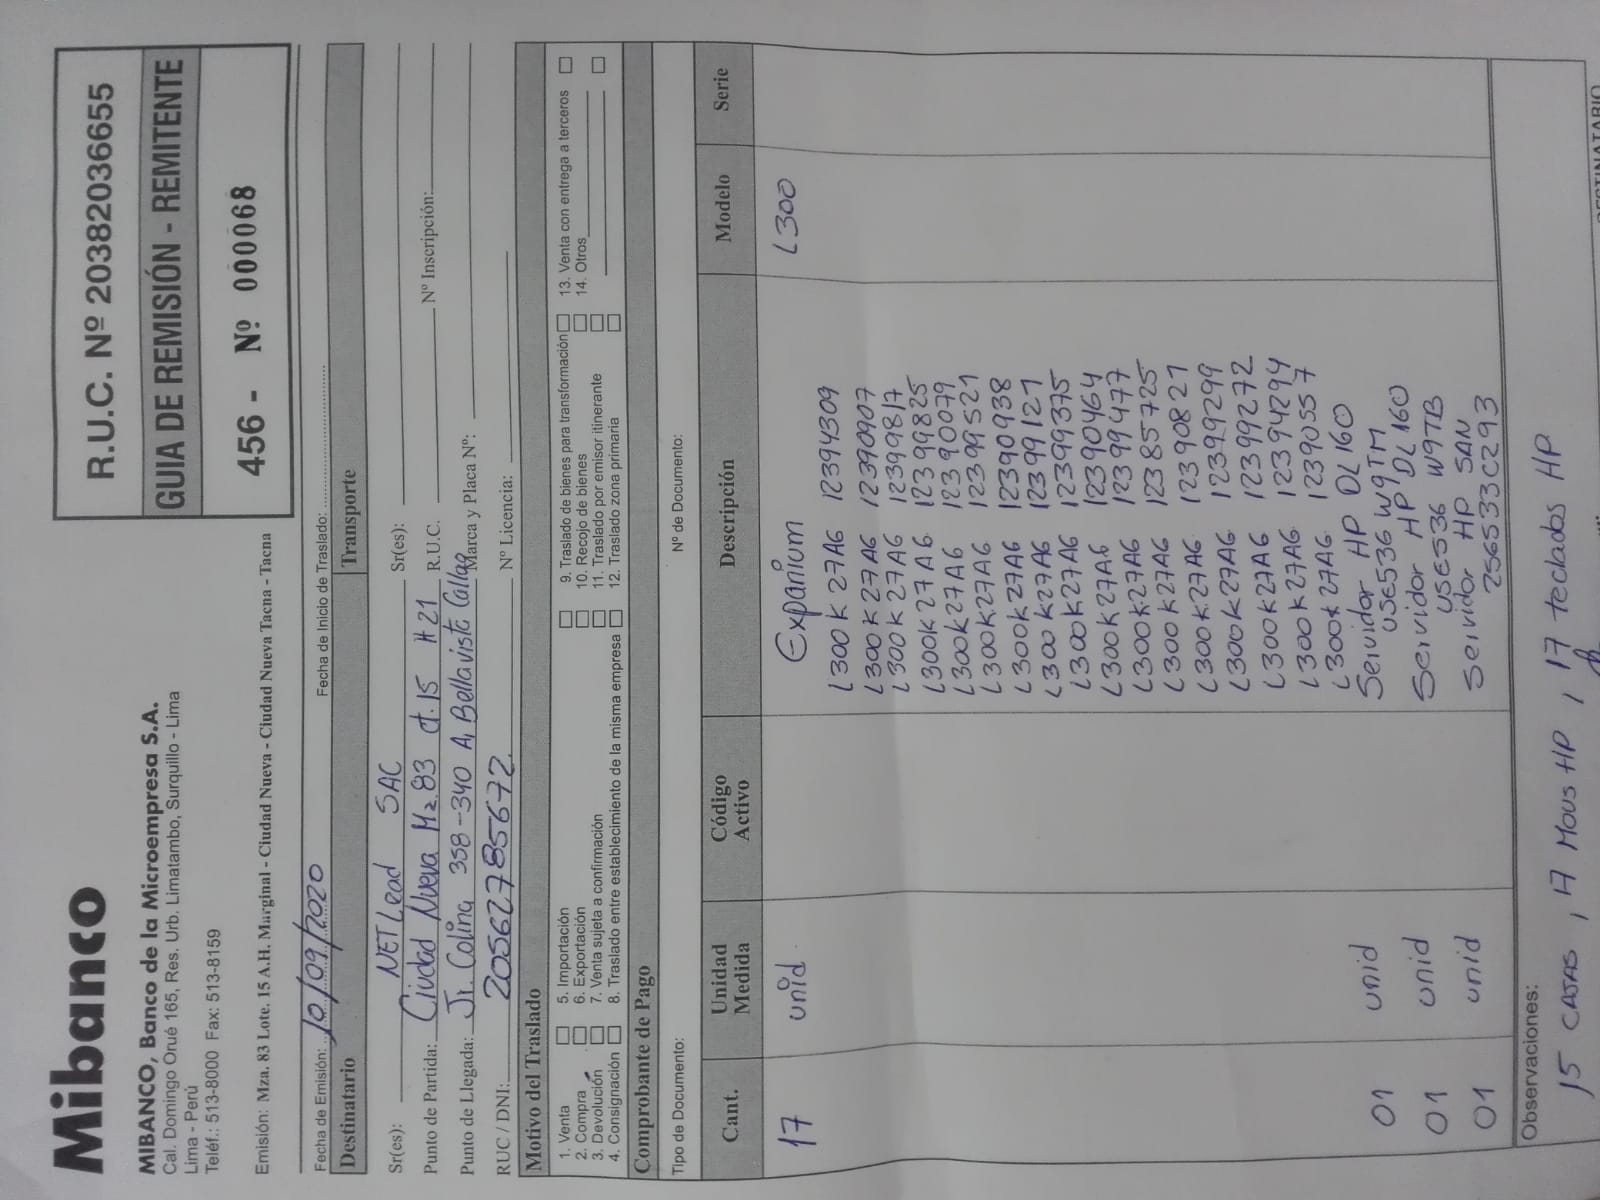 Mibanco
MIBANCO, Banco de la Microempresa S.A.
Cal. Domingo Orué 165, Res. Urb. Limatambo, Surquillo - Lima
Lima - Perú
Teléf.: 513-8000 Fax: 513-8159
Emisión: Mza. 83 Lote. 15 A.H. Marginal - Ciudad Nueva - Ciudad Nueva Tacna - Tacna
R.U.C. Nº 20382036655
GUIA DE REMISIÓN - REMITENTE
456 - Nº 000068
Fecha de Emisión: 10/09/2020 Fecha de Inicio de Traslado:
Destinatario Transporte
Sr(es): NETLead SAC Sr(es):
Punto de Partida: Ciudad Nueva Mz.83 Lt.15 # 21 R.U.C. Nº Inscripción:
Punto de Llegada: Jr. Colina 358-340 A, Bellavista Callao Marca y Placa Nº:
RUC / DNI: 20562785672 Nº Licencia:
Motivo del Traslado
1. Venta 5. Importación 9. Traslado de bienes para transformación 13. Venta con entrega a terceros
2. Compra 6. Exportación 10. Recojo de bienes 14. Otros
3. Devolución 7. Venta sujeta a confirmación 11. Traslado por emisor itinerante
4. Consignación 8. Traslado entre establecimiento de la misma empresa 12. Traslado zona primaria
Comprobante de Pago
Tipo de Documento: Nº de Documento:
Cant. Unidad Medida Código Activo Descripción Modelo Serie
17 unid Expanium L300
L300 K 27A6 12394309
L300 K 27A6 12390907
L300 K 27A6 12399817
L300K 27A6 12399825
L300K 27A6 12390079
L300K27A6 12399521
L300K 27A6 12390938
L300 K27A6 12399121
L300K27A6 12399375
L300K 27A6 12390464
L300K27A6 12399477
L300 K27A6 12385725
L300K27A6 12390821
L300K27A6 12399299
L300K27A6 12399272
L300 K27A6 12394294
L300K27A6 12390557
01 unid Servidor HP DL160
USE536W9TM
01 unid Servidor HP DL160
USE536 W9TB
01 unid Servidor HP SAN
256533C2293
Observaciones:
15 CAJAS, 17 MOUS HP, 17 teclados HP
DESTINATARIO